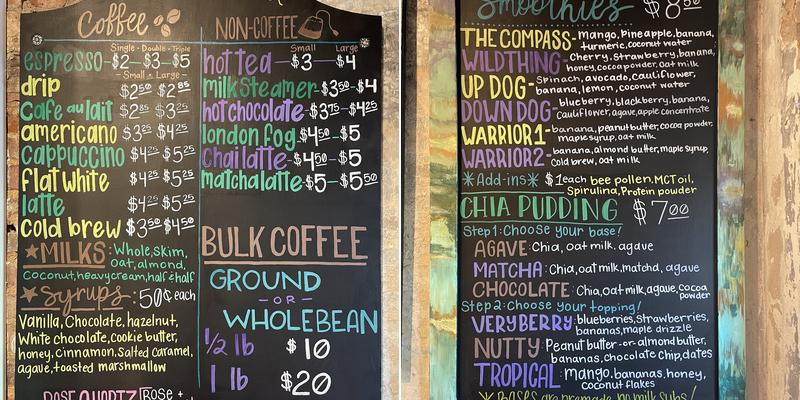 Coffee
Single - Double - Triple
espresso - $2 - $3 - $5
Small - Large
drip $2.50 $2.85
Cafe au lait $2.85 $3.25
americano $3.25 $4.25
cappuccino $4.25 $5.25
flat white $4.25 $5.25
latte $4.25 $5.25
cold brew $3.50 $4.50
★MILKS: Whole, Skim,
oat, almond,
Coconut, heavy cream, half & half
★Syrups: 50¢ each
Vanilla, Chocolate, hazelnut,
White chocolate, cookie butter,
honey, cinnamon, Salted Caramel,
agave, toasted marshmallow
ROSE QUARTZ [Rose +
NON-COFFEE
Small Large
hot tea - $3 - $4
milk steamer - $3.50 - $4
hot chocolate - $3.75 - $4.25
london fog - $4.50 - $5
Chai latte - $4.50 - $5
matcha latte - $5 - $5.50
BULK COFFEE
GROUND
- OR -
WHOLE BEAN
1/2 lb $10
1 lb $20
Smoothies $8.50
THE COMPASS - mango, Pineapple, banana,
turmeric, coconut water
WILDTHING - Cherry, Strawberry, banana,
honey, cocoa powder, oat milk
UP DOG - Spinach, avocado, cauliflower,
banana, lemon, coconut water
DOWN DOG - blueberry, blackberry, banana,
Cauliflower, agave, apple concentrate
WARRIOR 1 - banana, peanut butter, cocoa powder,
maple syrup, oat milk
WARRIOR 2 - banana, almond butter, maple syrup,
Cold brew, oat milk
*Add-ins* $1 each bee pollen, MCT oil,
Spirulina, Protein powder
CHIA PUDDING $7.00
Step 1: Choose your base!
AGAVE: Chia, oat milk, agave
MATCHA: Chia, oat milk, matcha, agave
CHOCOLATE: Chia, oat milk, agave, cocoa
powder
Step 2: Choose your topping!
VERY BERRY: blueberries, Strawberries,
bananas, maple drizzle
NUTTY: Peanut butter - or - almond butter,
bananas, chocolate chip, dates
TROPICAL: mango, bananas, honey,
coconut flakes
*Bases are premade, no milk subs!